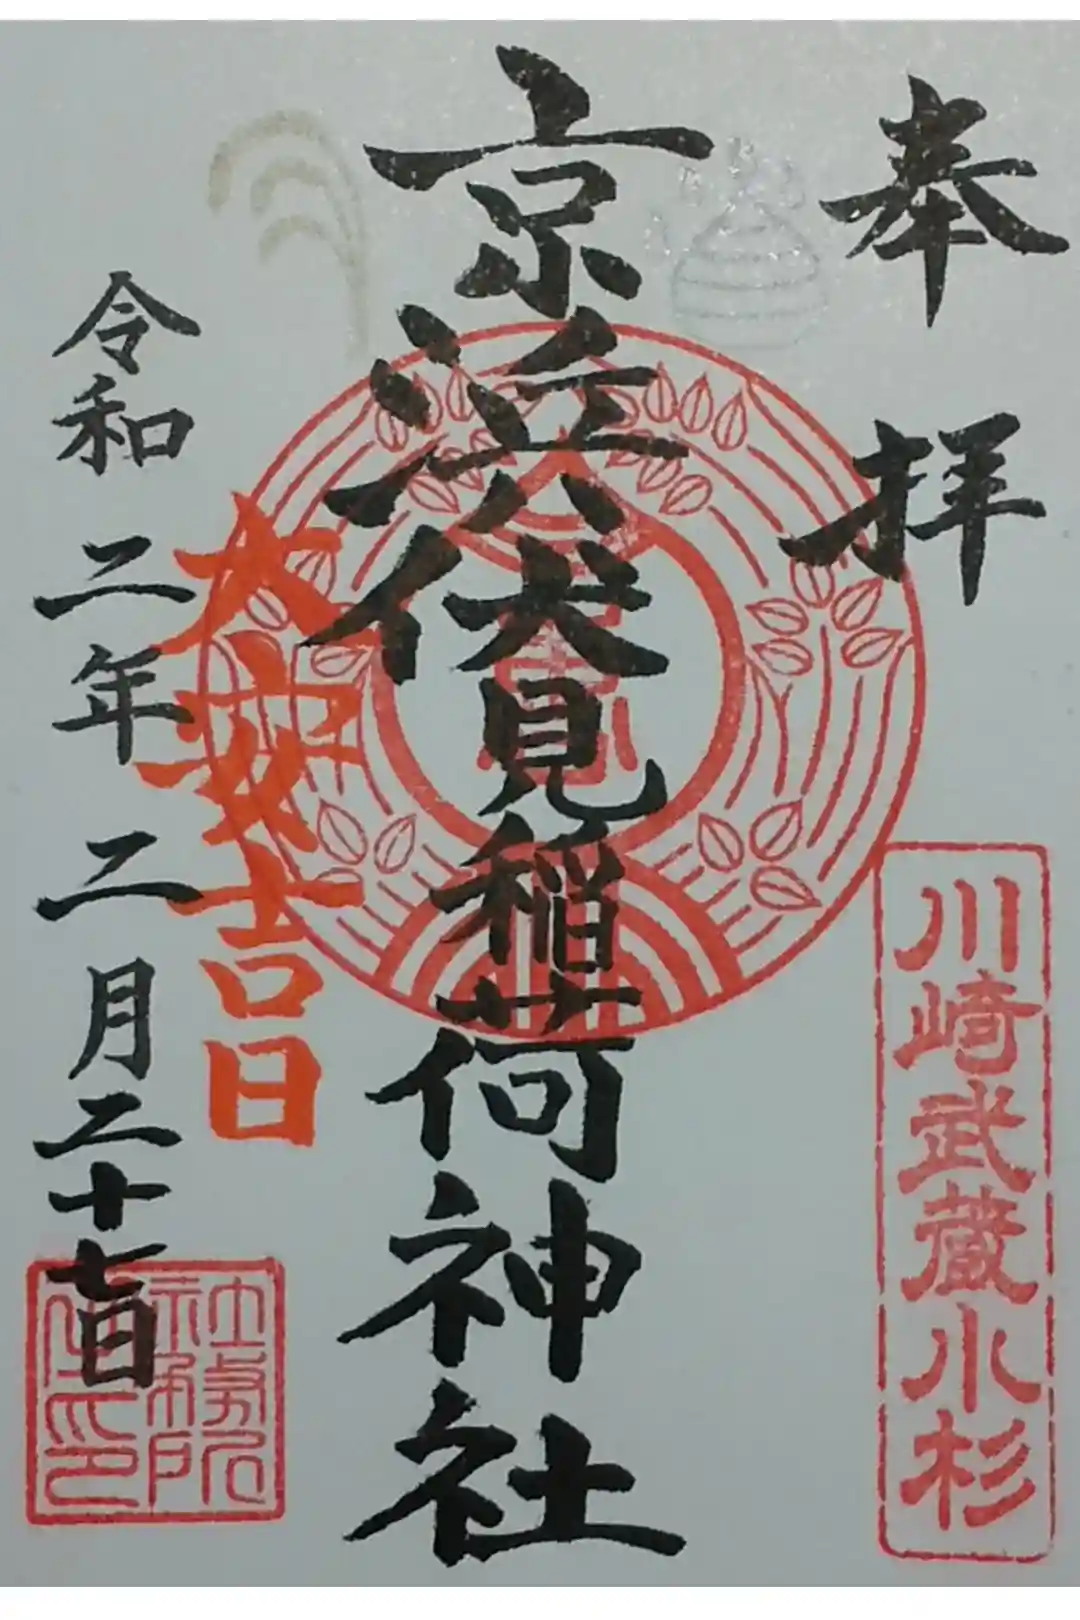 奉拝
川崎武蔵小杉
京浜伏見稲荷神社
大安吉日
令和二年二月二十七日
社務所之印